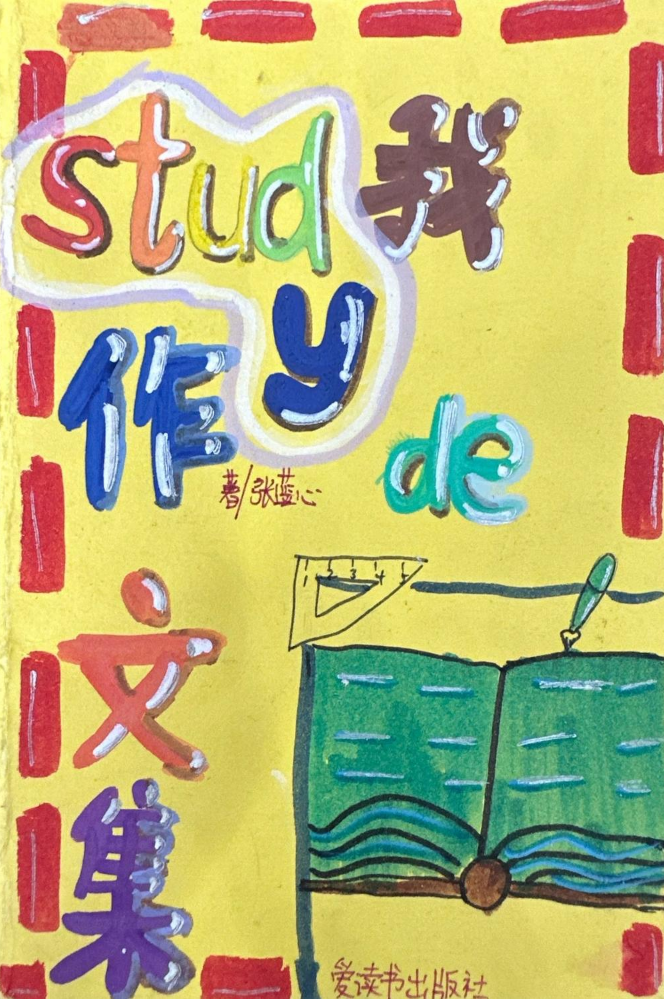 study
我
de
作
文
集
著/张蓝心
1 2 3 4 5
爱读书出版社